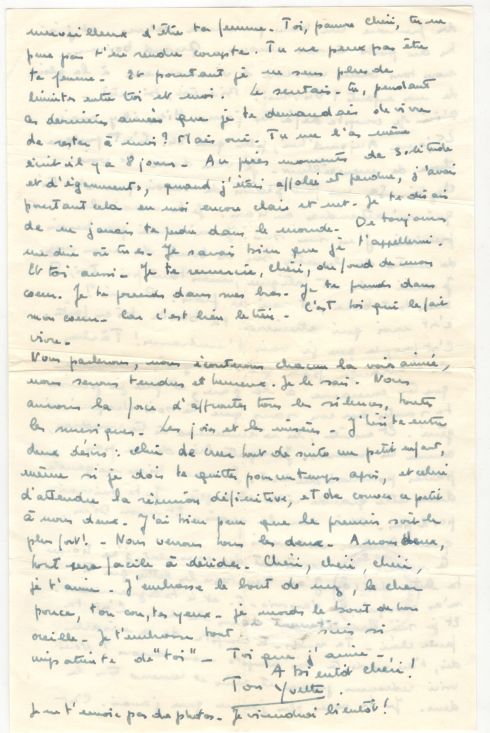 merveilleux d'être ta femme. Toi, pauvre chéri, tu ne
peux pas t'en rendre compte. Tu ne peux pas être
ta femme. Et pourtant je ne sens plus de
limites entre toi et moi. Le sentais-tu, pendant
ces dernières années que je te demandais de vivre
de rester à moi? Mais oui. Tu me l'as même
écrit il y a 8 jours. Au pires moments de solitude
et d'égarements, quand j'étais affolée et perdue, j'avais
pourtant cela en moi encore clair et net. Je te disais
de ne jamais te perdre dans le monde. De toujours
me dire où tu es. Je savais bien que je t'appellerai.
Et toi aussi. Je te remercie, chéri, du fond de mon
coeur. Je te prends dans mes bras. Je te prends dans
mon coeur. Car c'est bien le tien. C'est toi qui le fait
vivre.
Nous parlerons, nous écouterons chacun la voix aimée,
nous serons tendres et heureux. Je le sais. Nous
aurons la force d'affronter tous les silences, toutes
les musiques. Les joies et les misères. J'hésite entre
deux désirs: celui de créer tout de suite un petit enfant,
même si je dois te quitter pour un temps après, et celui
d'attendre la réunion définitive, et de couver ce petit
à nous deux. J'ai bien peur que le premier soit le
plus fort!. Nous verrons tous les deux. A nous deux,
tout sera facile à décider. Chéri, chéri, chéri,
je t'aime. J'embrasse le bout de nez, le cher
pouce, ton cou, tes yeux. Je mords le bout de ton
oreille. Je t'embrasse tout suis si
impatiente de "toi". Toi que j'aime.
A bientôt chéri!
Ton Yvette.
Je ne t'envoie pas de photos. Je viendrai bientôt!